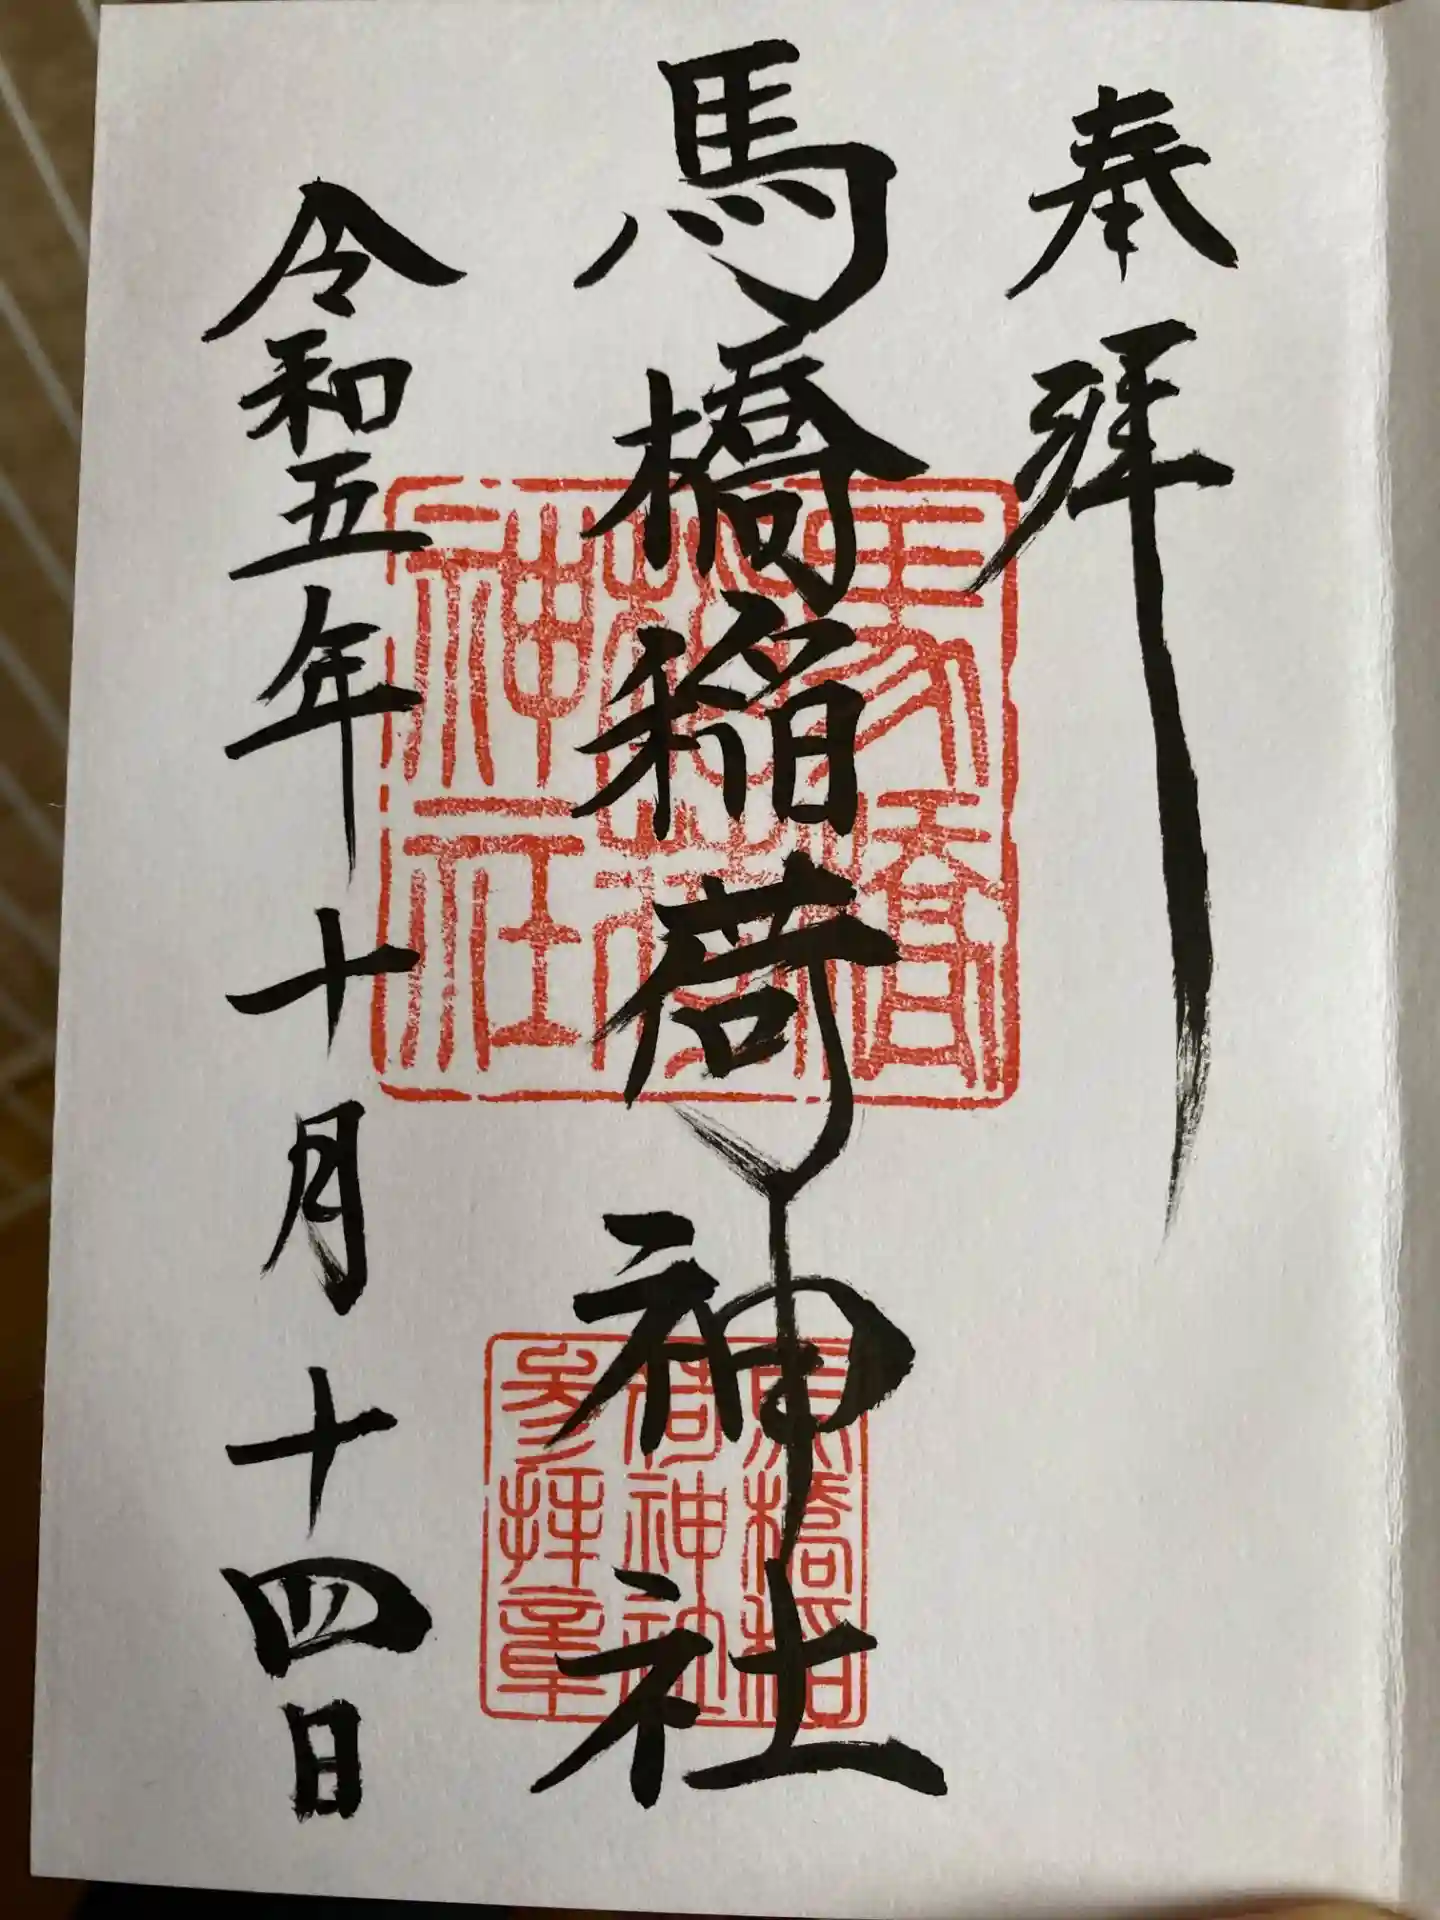 奉拝
馬橋稲荷神社
令和五年十月十四日
馬橋
稲荷
神社
馬橋稲
荷神社
参拝章